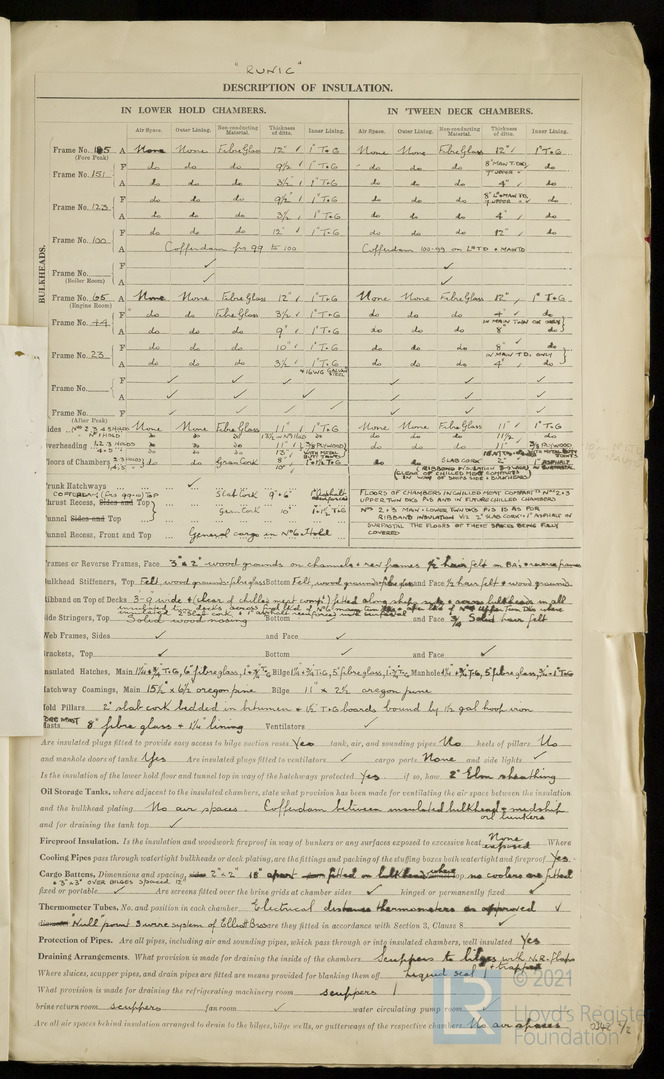 "RUNIC"
DESCRIPTION OF INSULATION.
IN LOWER HOLD CHAMBERS. IN 'TWEEN DECK CHAMBERS.
Air Space. Outer Lining. Non-conducting Material. Thickness of ditto. Inner Lining. Air Space. Outer Lining. Non-conducting Material. Thickness of ditto. Inner Lining.
BULKHEADS.
Frame No. 185 (Fore Peak) A None None Fibre Glass 12" 1" T+G None None Fibre Glass 12" 1" T+G
F do do do 9½" 1" T+G do do do 8" MAIN T.DK do
Frame No. 151
A do do do 3½" 1" T+G do do do 4" do
F do do do 9½" 1" T+G do do do do
Frame No. 123
A do do do 3½ 1" T+G do do do 4" do
F do do do 12" 1" T+G do do do 12" do
Frame No. 100
A Cofferdam frs 99 to 100 Cofferdam 100-99 on LR TD + MAIN TD
Frame No. (Boiler Room) F ✓ ✓
A ✓ ✓
Frame No. 65 (Engine Room) A None None Fibre Glass 12" 1" T+G None None Fibre Glass 12" 1" T+G
F do do Fibre Glass 3½" 1" T+G do do do 4" do
Frame No. 44 IN MAIN TWN DK ONLY
A do do do 9" 1" T+G do do do 8" do
F do do do 10" 1" T+G do do do 8" do
Frame No. 23 IN MAIN T.D. ONLY
A do do do 3½ 1" T+G do do do 4" do
+ 16 WG GALVD STEEL
Frame No. F ✓ ✓ ✓ ✓ ✓ ✓ ✓
A ✓ ✓ ✓ ✓ ✓ ✓ ✓
Frame No. (After Peak) F ✓ ✓ ✓ ✓ ✓ ✓ ✓
Sides None None Fibre Glass 11" 1" T+G None None Fibre Glass 11" 1" T+G
Nº 1 HOLD do do do 13½ in Nº1 Hold do do do do 11½ do
Overheading do do do 11" 3/8 PLYWOOD WITH METAL BUTT STRAPS do do do 11" 3/8 PLYWOOD WITH METAL BUTT STRAPS
Floors of Chambers do do Gran Cork 10" do do SLAB CORK 2" 1" ASPHALT
(RIBBOND INSULATION 3-9 WIDE) IN SURFASTAL
(CLEAR OF CHILLED MEAT COMPTS) IN WAY OF SHIPS SIDE + BULKHEADS)
Trunk Hatchways ✓
COFFERDAM (frs 99-100) TOP Slab Cork 9" + 6" 1" Asphalt
Thrust Recess, Sides and Top
Gran Cork 10" 1" + 1½" T+G
Tunnel Sides and Top
Tunnel Recess, Front and Top General cargo in Nº 6 Hold
FLOORS OF CHAMBERS IN CHILLED MEAT COMPARTTS Nºs 2+3
UPPER TWN DKS P+S AND IN FUTURE CHILLED CHAMBERS
Nºs 2+3 MAIN + LOWER TWN DKS P+S IS AS FOR
RIBBAND INSULATION VIZ 2" SLAB CORK + 1" ASPHALT IN
SURFASTAL THE FLOORS OF THESE SPACES BEING FULLY
COVERED
Frames or Reverse Frames, Face 3" x 2" wood grounds on channels + rev frames ½" hair felt on BA's + reverse frames
Bulkhead Stiffeners, Top Felt, wood grounds + fibreglass Bottom Felt, wood grounds + fibreglass and Face ½" hair felt + wood grounds
Ribband on Top of Decks 3-9 wide + (clear of chilled meat compts) fitted along ships side + across bulkheads in all
Side Stringers, Top Solid wood nosing Bottom and Face ¾" Solid hair felt
Web Frames, Sides ✓ and Face ✓
Brackets, Top ✓ Bottom ✓ and Face ✓
Insulated Hatches, Main 1¼ + ¾" T+G, 6" fibreglass, 1 + ¾ T+G Bilge 1¼ + ¾ T+G, 5" fibreglass, 1 + ¾ T+G Manhole 1¼ + ¾ T+G, 5" fibreglass, ¾ + 1" T+G
Hatchway Coamings, Main 15½" x 6½ oregon pine Bilge 11" x 2½ oregon pine
Hold Pillars 2" slab cork bedded in bitumen + 1½" T+G boards bound by 1½ gal hoop iron
FOREMOST Masts 8" fibre glass + 1¼" lining Ventilators ✓
Are insulated plugs fitted to provide easy access to bilge suction roses Yes tank, air, and sounding pipes No heels of pillars No
and manhole doors of tanks Yes Are insulated plugs fitted to ventilators ✓ cargo ports None and side lights ✓
Is the insulation of the lower hold floor and tunnel top in way of the hatchways protected Yes if so, how 2" Elm sheathing
Oil Storage Tanks, where adjacent to the insulated chambers, state what provision has been made for ventilating the air space between the insulation
and the bulkhead plating No air spaces. Cofferdam between insulated bulkhead + midship
and for draining the tank top ✓ oil bunkers
Fireproof Insulation. Is the insulation and woodwork fireproof in way of bunkers or any surfaces exposed to excessive heat None exposed Where
Cooling Pipes pass through watertight bulkheads or deck plating, are the fittings and packing of the stuffing boxes both watertight and fireproof Yes
Cargo Battens, Dimensions and spacing, sides 2" x 2" 18" apart fitted on bulkheads where no coolers are fitted
+ 3" x 3" OVER BILGES SPACED 12"
fixed or portable ✓ Are screens fitted over the brine grids at chamber sides ✓ hinged or permanently fixed ✓
Thermometer Tubes, No. and position in each chamber Electrical distance thermometers as approved ✓
"Null" point 3 wire system of Elliott Bros are they fitted in accordance with Section 3, Clause 8 ✓
Protection of Pipes. Are all pipes, including air and sounding pipes, which pass through or into insulated chambers, well insulated Yes
Draining Arrangements. What provision is made for draining the inside of the chambers Scuppers to bilges with N.R. flaps
Where sluices, scupper pipes, and drain pipes are fitted are means provided for blanking them off Liquid seal + trapped
What provision is made for draining the refrigerating machinery room scuppers
brine return room scuppers fan room ✓ water circulating pump room ✓
Are all air spaces behind insulation arranged to drain to the bilges, bilge wells, or gutterways of the respective chambers No air spaces
0342 1/2
LR
© 2021
Lloyd's Register
Foundation